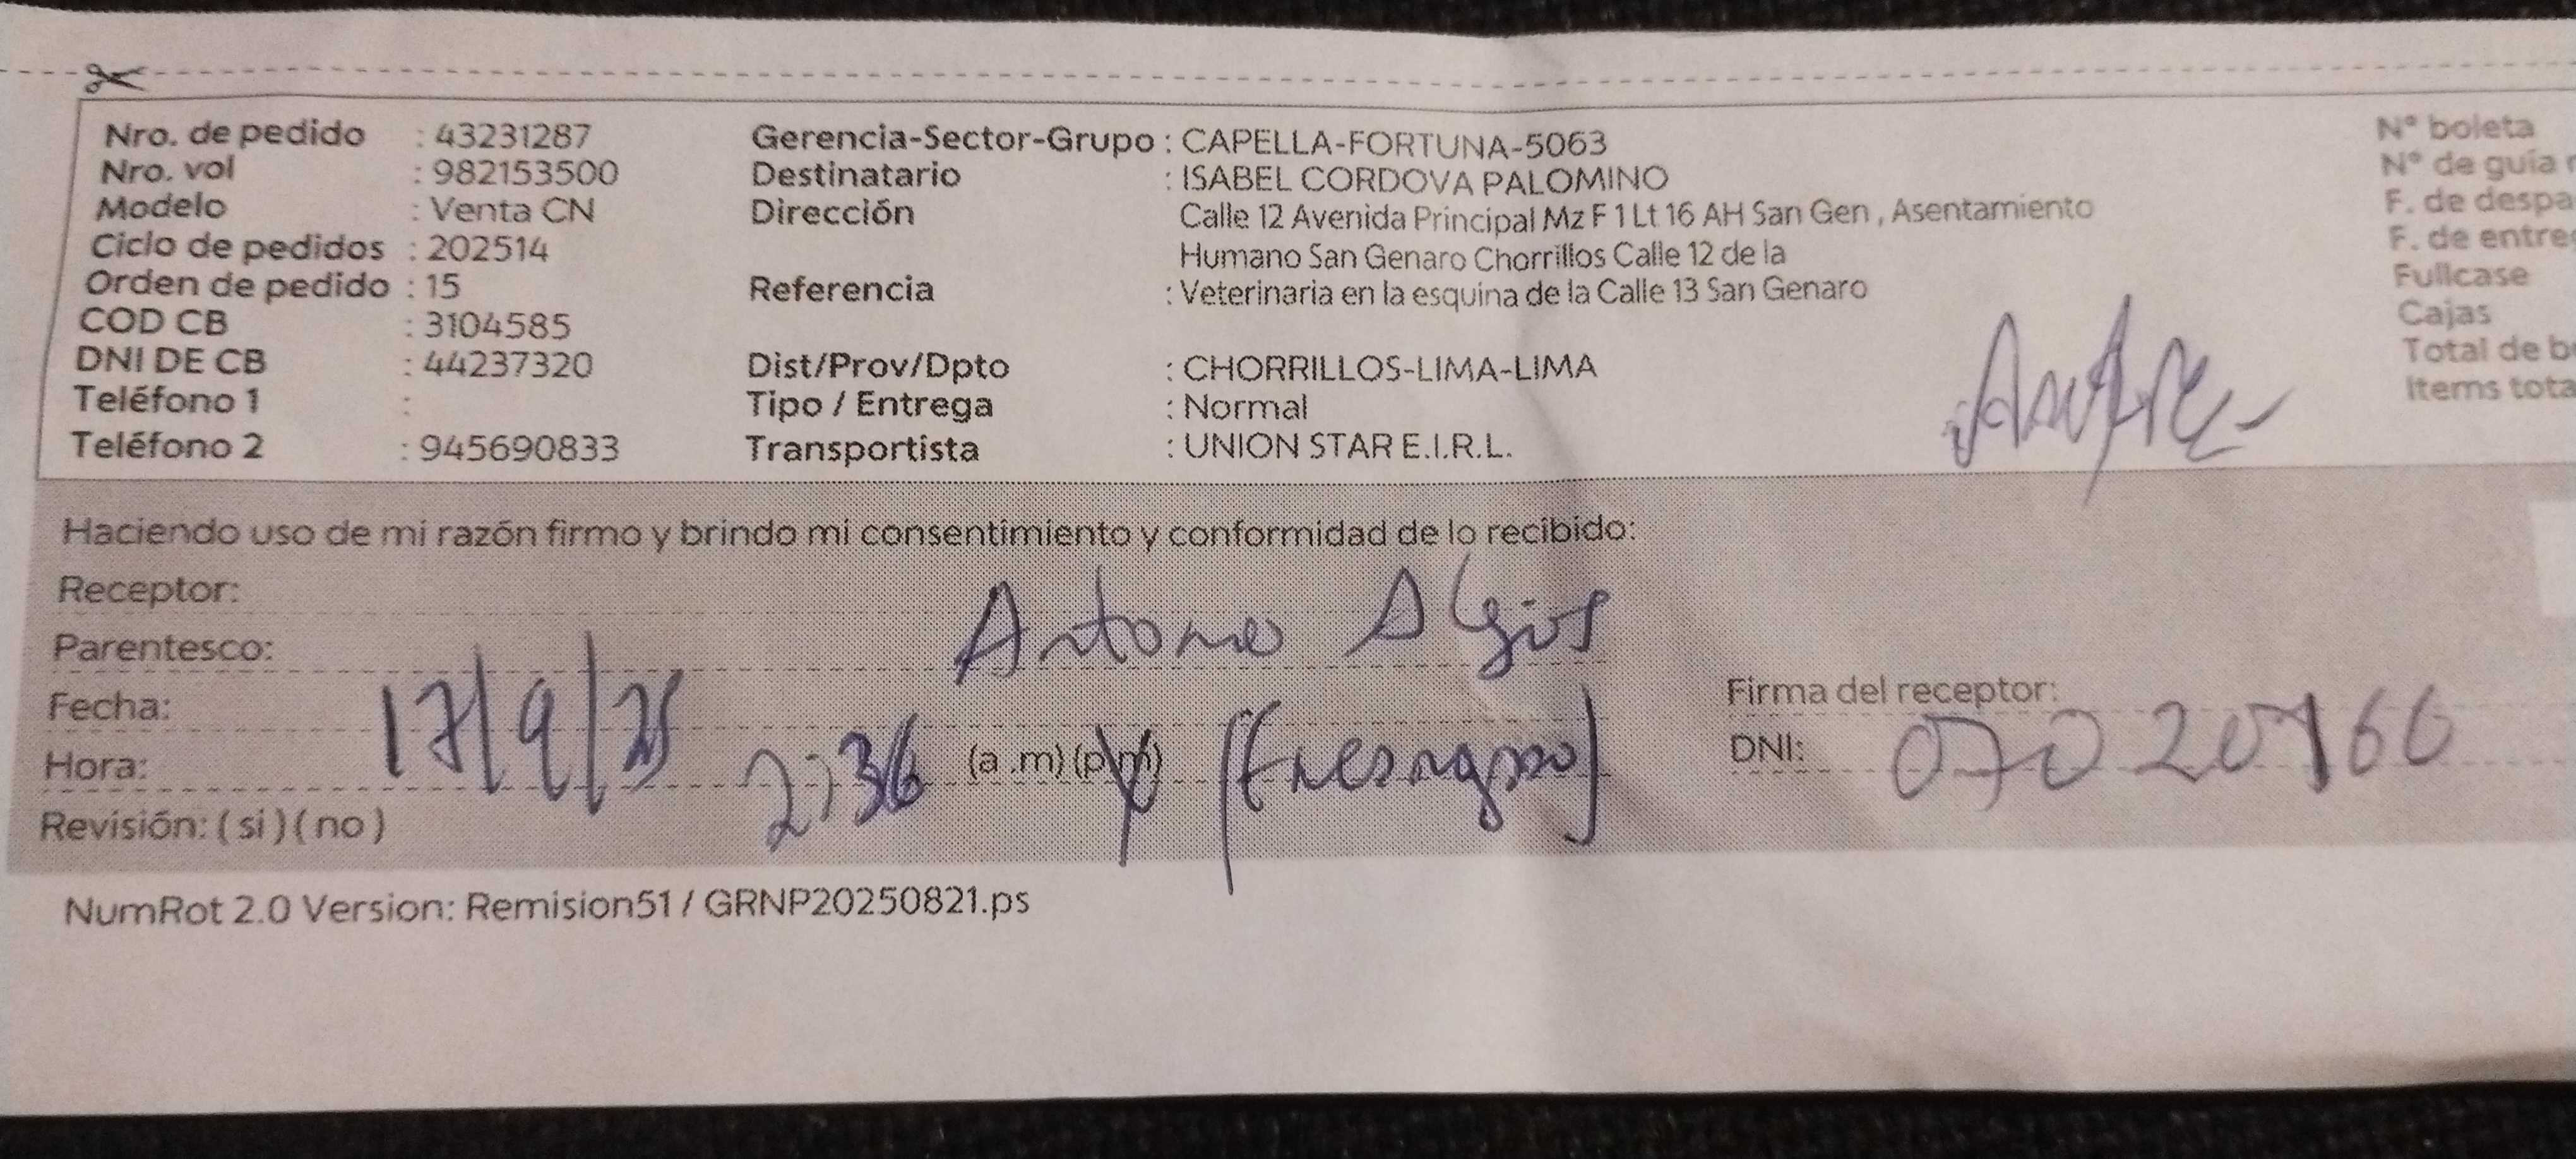 Nro. de pedido : 43231287
Nro. vol : 982153500
Modelo : Venta CN
Ciclo de pedidos : 202514
Orden de pedido : 15
COD CB : 3104585
DNI DE CB : 44237320
Teléfono 1 :
Teléfono 2 : 945690833
Gerencia-Sector-Grupo : CAPELLA-FORTUNA-5063
Destinatario : ISABEL CORDOVA PALOMINO
Dirección Calle 12 Avenida Principal Mz F 1 Lt 16 AH San Gen , Asentamiento
Humano San Genaro Chorrillos Calle 12 de la
Referencia : Veterinaria en la esquina de la Calle 13 San Genaro
Dist/Prov/Dpto : CHORRILLOS-LIMA-LIMA
Tipo / Entrega : Normal
Transportista : UNION STAR E.I.R.L.
N° boleta
N° de guía
F. de despa
F. de entre
Fullcase
Cajas
Total de b
Items tota
Haciendo uso de mi razón firmo y brindo mi consentimiento y conformidad de lo recibido:
Receptor: Antonio
Parentesco:
Fecha: 17/9/25
Hora: 2:36 (a .m) (p.m)
Revisión: ( si ) ( no )
Firma del receptor:
DNI:
NumRot 2.0 Version: Remision51 / GRNP20250821.ps